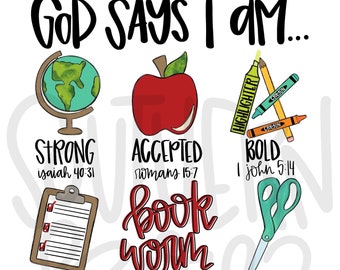 GOD SAYS I AM...
HIGHLIGHTER
STRONG
isaiah 40:31
ACCEPTED
romans 15:7
BOLD
1 john 5:14
book
worm
SOUTHERN